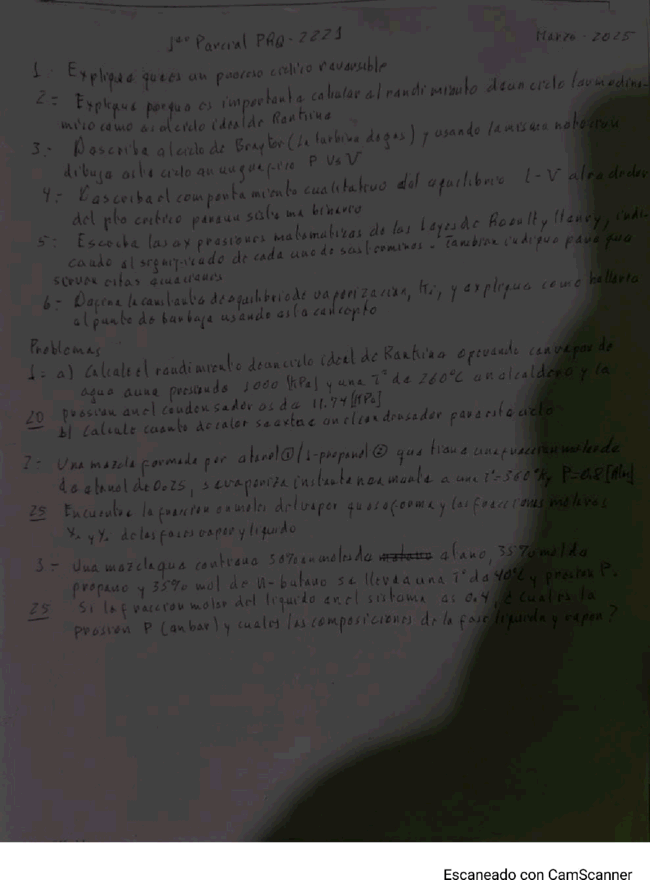 1er Parcial PRQ-2221 Marzo-2025
1.- Explique que es un proceso ciclico reversible
2.- Explique porque es importante calcular el rendimiento de un ciclo termodina
mico como es el ciclo ideal de Rankine
3.- Describa el ciclo de Brayton (la turbina de gas) y usando la misma notacion
dibuje este ciclo en un grafico P vs V
4.- Describa el comportamiento cualitativo del equilibrio L-V alrededor
del pto critico para un sistema binario
5.- Escriba las expresiones matematicas de las Leyes de Raoult y Henry, indi
cando el significado de cada uno de sus terminos - Tambien indique para que
sirven estas ecuaciones
6.- Defina la constante de equilibrio de vaporización, Ki, y explique como hallaria
el punto de burbuja usando este concepto
Problemas
1.- a) Calcule el rendimiento de un ciclo ideal de Rankine operando con vapor de
agua a una presion de 1000 [KPa] y una T° de 260°C en el caldera y la
20 presion en el condensador es de 11.74 [KPa]
b) Calcule cuanto de calor se extrae en el condensador para este ciclo
2.- Una mezcla formada por etanol ① /1-propanol ② que tiene una fraccion molar de
de etanol de 0.25, se vaporiza instantaneamente a una T°=360°K, P=0.8 [Atm]
25 Encuentre la fraccion en moles del vapor que se forma y las fracciones molares
X₁ y Y₁ de las fases vapor y liquido
3.- Una mezcla que contiene 30% en moles de etano, 35% mol de
propano y 35% mol de n-butano se lleva a una T° de 40°C y presion P.
25 Si la fraccion molar del liquido en el sistema es 0.4, ¿cual es la
presion P (en bar) y cuales las composiciones de la fase liquida y vapor?
Escaneado con CamScanner